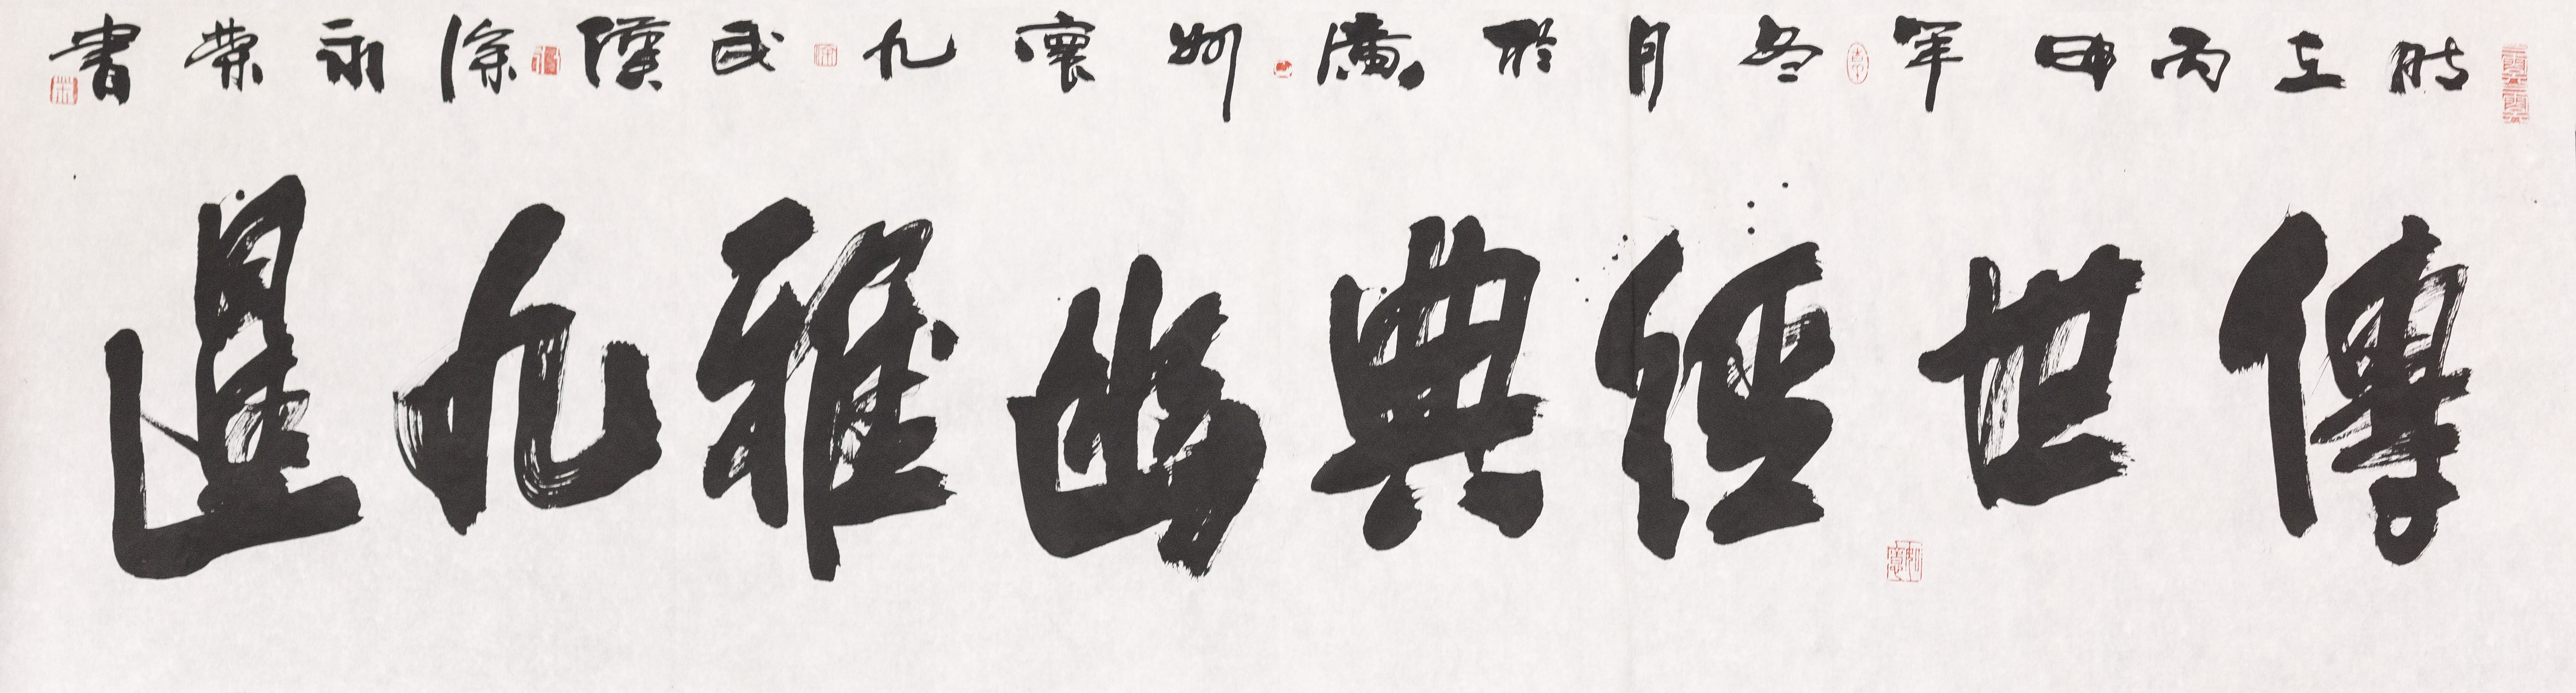 時在丙申年冬月於廣州寰九武漢徐永榮書
傳世經典幽雅九